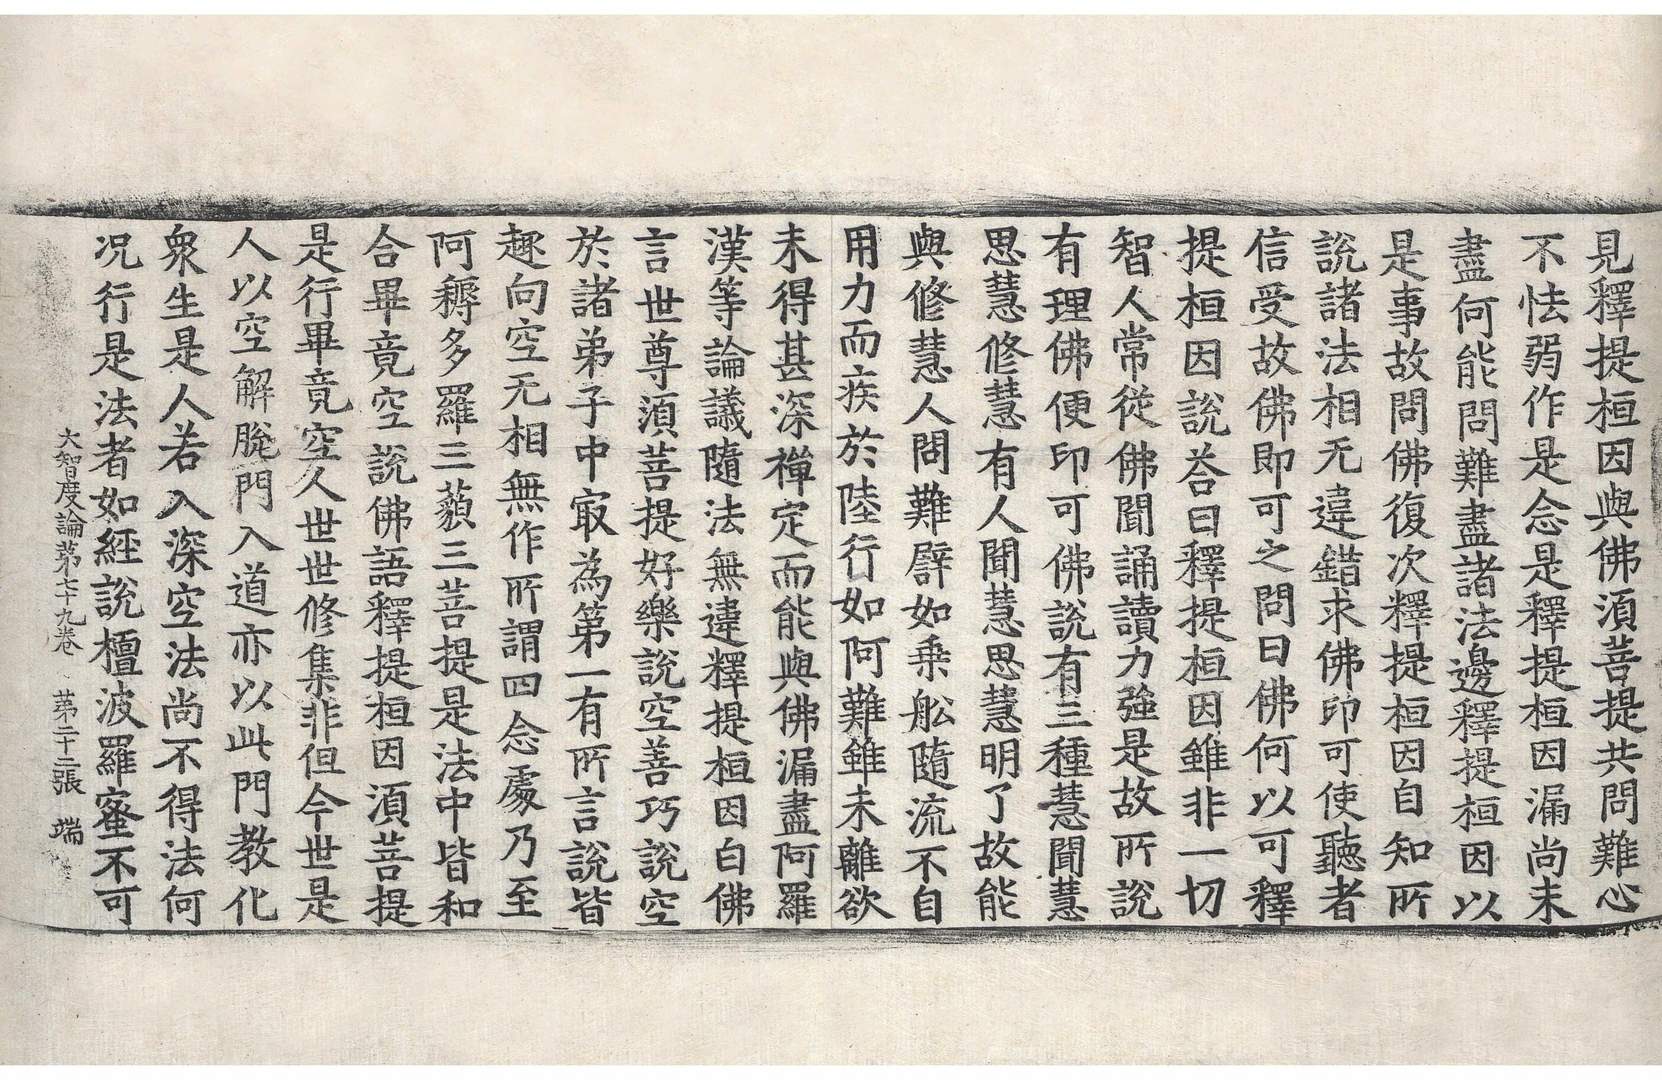 見釋提桓因與佛湏菩提共問難心
不怯弱作是念是釋提桓因漏尚未
盡何能問難盡諸法邊釋提桓因以
是事故問佛復次釋提桓因自知所
說諸法相无違錯求佛印可使聽者
信受故佛即可之問曰佛何以可釋
提桓因說荅曰釋提桓因雖非一切
智人常從佛聞誦讀力強是故所說
有理佛便印可佛說有三種慧聞慧
思慧修慧有人聞慧思慧明了故能
與修慧人問難辟如乗舩隨流不自
用力而疾於陸行如阿難雖未離欲
未得甚深禪定而能與佛漏盡阿羅
漢等論議隨法無違釋提桓因白佛
言世尊湏菩提好樂說空善巧說空
於諸弟子中㝡為第一有所言說皆
趣向空无相無作所謂四念處乃至
阿耨多羅三藐三菩提是法中皆和
合畢竟空說佛語釋提桓因湏菩提
是行畢竟空久世世修集非但今世是
人以空解脫門入道亦以此門教化
衆生是人若入深空法尚不得法何
况行是法者如經說檀波羅蜜不可
大智度論苐七十九卷 苐二十二張 端